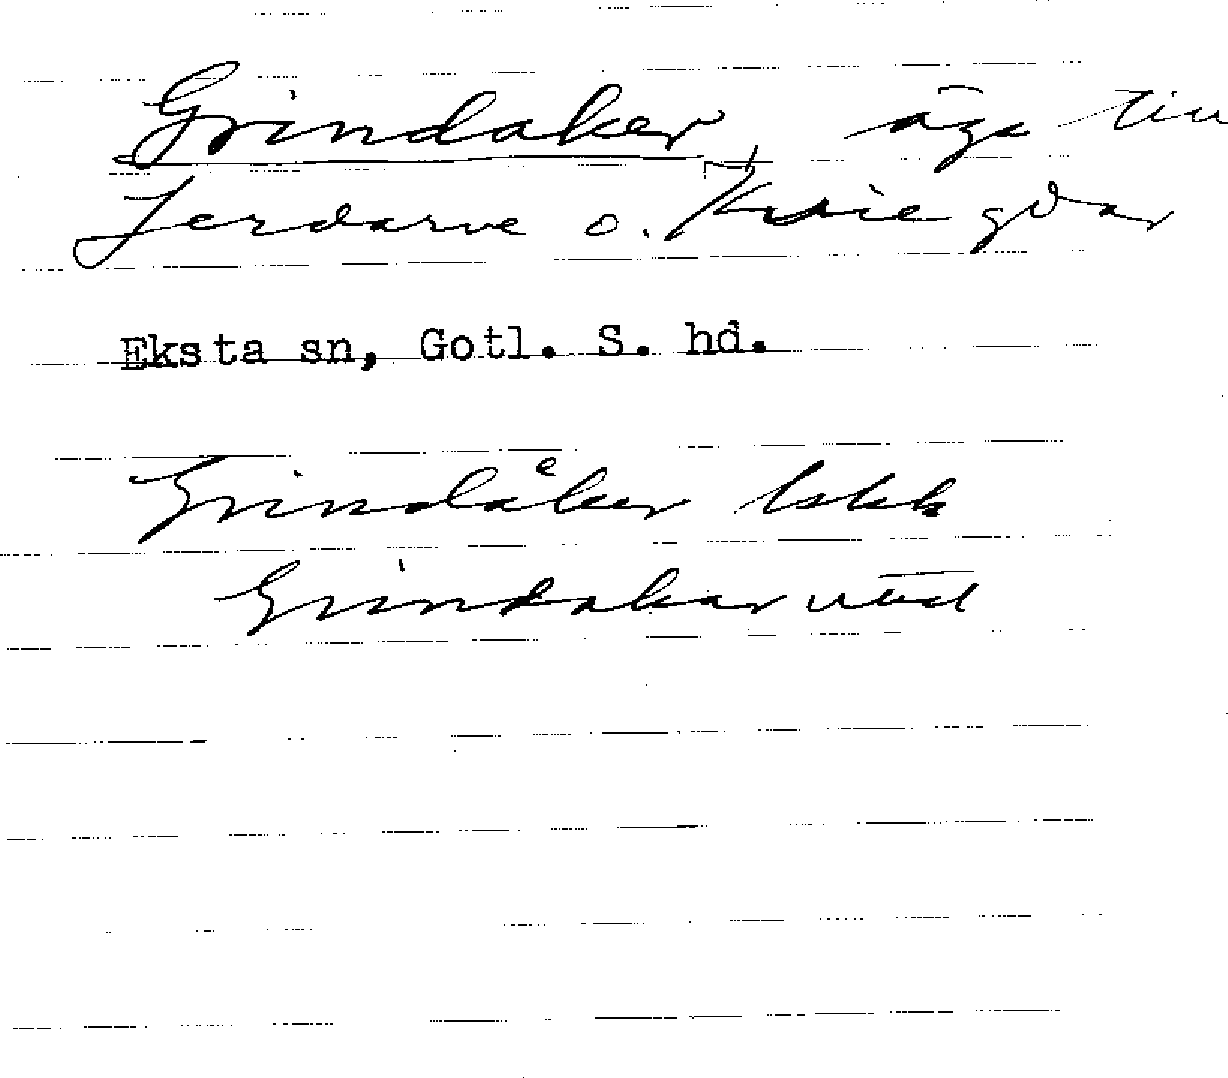 Grindaker, äga till
Jerdarve o. gdar
Eksta sn, Gotl. S. hd.
Grindåker lskk
Grindakar